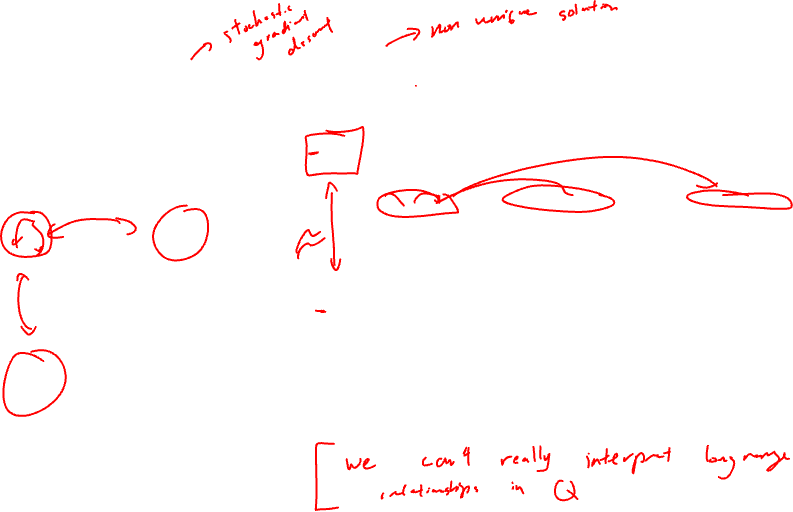 stochastic
gradient
descent
non unique solution
we can't really interpret long range
relationships in Q